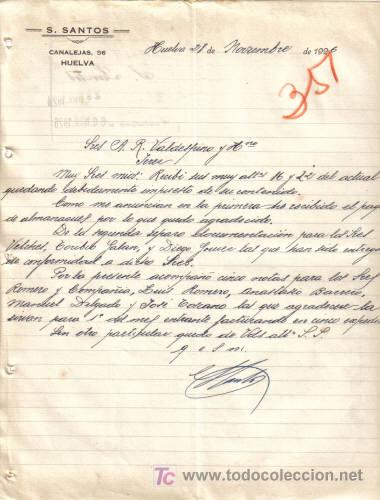 S. SANTOS
CANALEJAS, 56
HUELVA
Huelva 28 de Noviembre de 1926
357
Sres A. R. Valdespino y Hno
Jerez
Muy Sres mios: Recibi sus muy attas 16 y 22 del actual
quedando debidamente impuesto de su contenido.
Como me anuncian en la primera he recibido el paq
de almanaques por lo que quedo agradecido.
De la segunda separo documentación para los Sres
Vilches, Toribio Galan, y Diego Ponce las que han sido entreg
de conformidad a dichos Sres.
Por la presente acompaño cinco notas para los Sres
Romero y Compañia, Luis Romero, Anastasio Barrero,
Manuel Delgado y José Lozano las que agradecere la
sirvan para 1º del mes entrante facturando en cinco exped
Sin otro particular quedo de Vds atto S. S.
q e s m
TC
www.todocoleccion.net